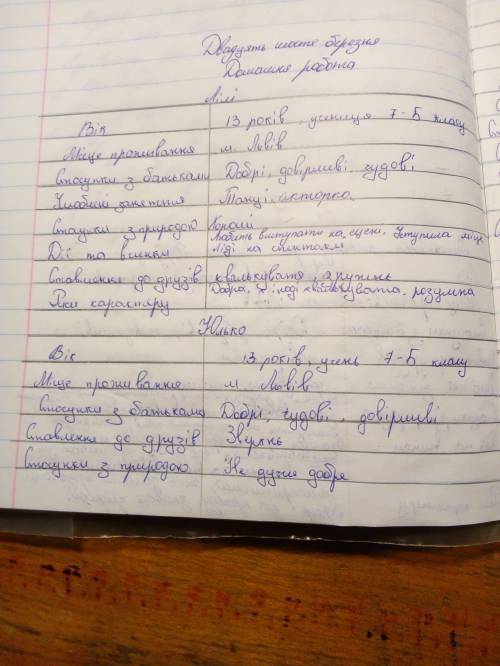 Двадцять шосте березня
Домашня робота
Лілі
Вік 13 років, учениця 7-Б класу
Місце проживання м. Львів
Стосунки з батьками Добрі, довірливі, чудові
Улюблені заняття Танці, акторка
Стосунки з природою Хороші
Дії та вчинки Любить виступати на сцені, Уступила місце Ліді на спектаклі
Ставлення до друзів
Риси характеру Добра, іноді розумна
Юлько
Вік 13 років, учень 7-Б класу
Місце проживання м. Львів
Стосунки з батьками Добрі, чудові, довірливі
Ставлення до друзів
Стосунки з природою Не дуже добре